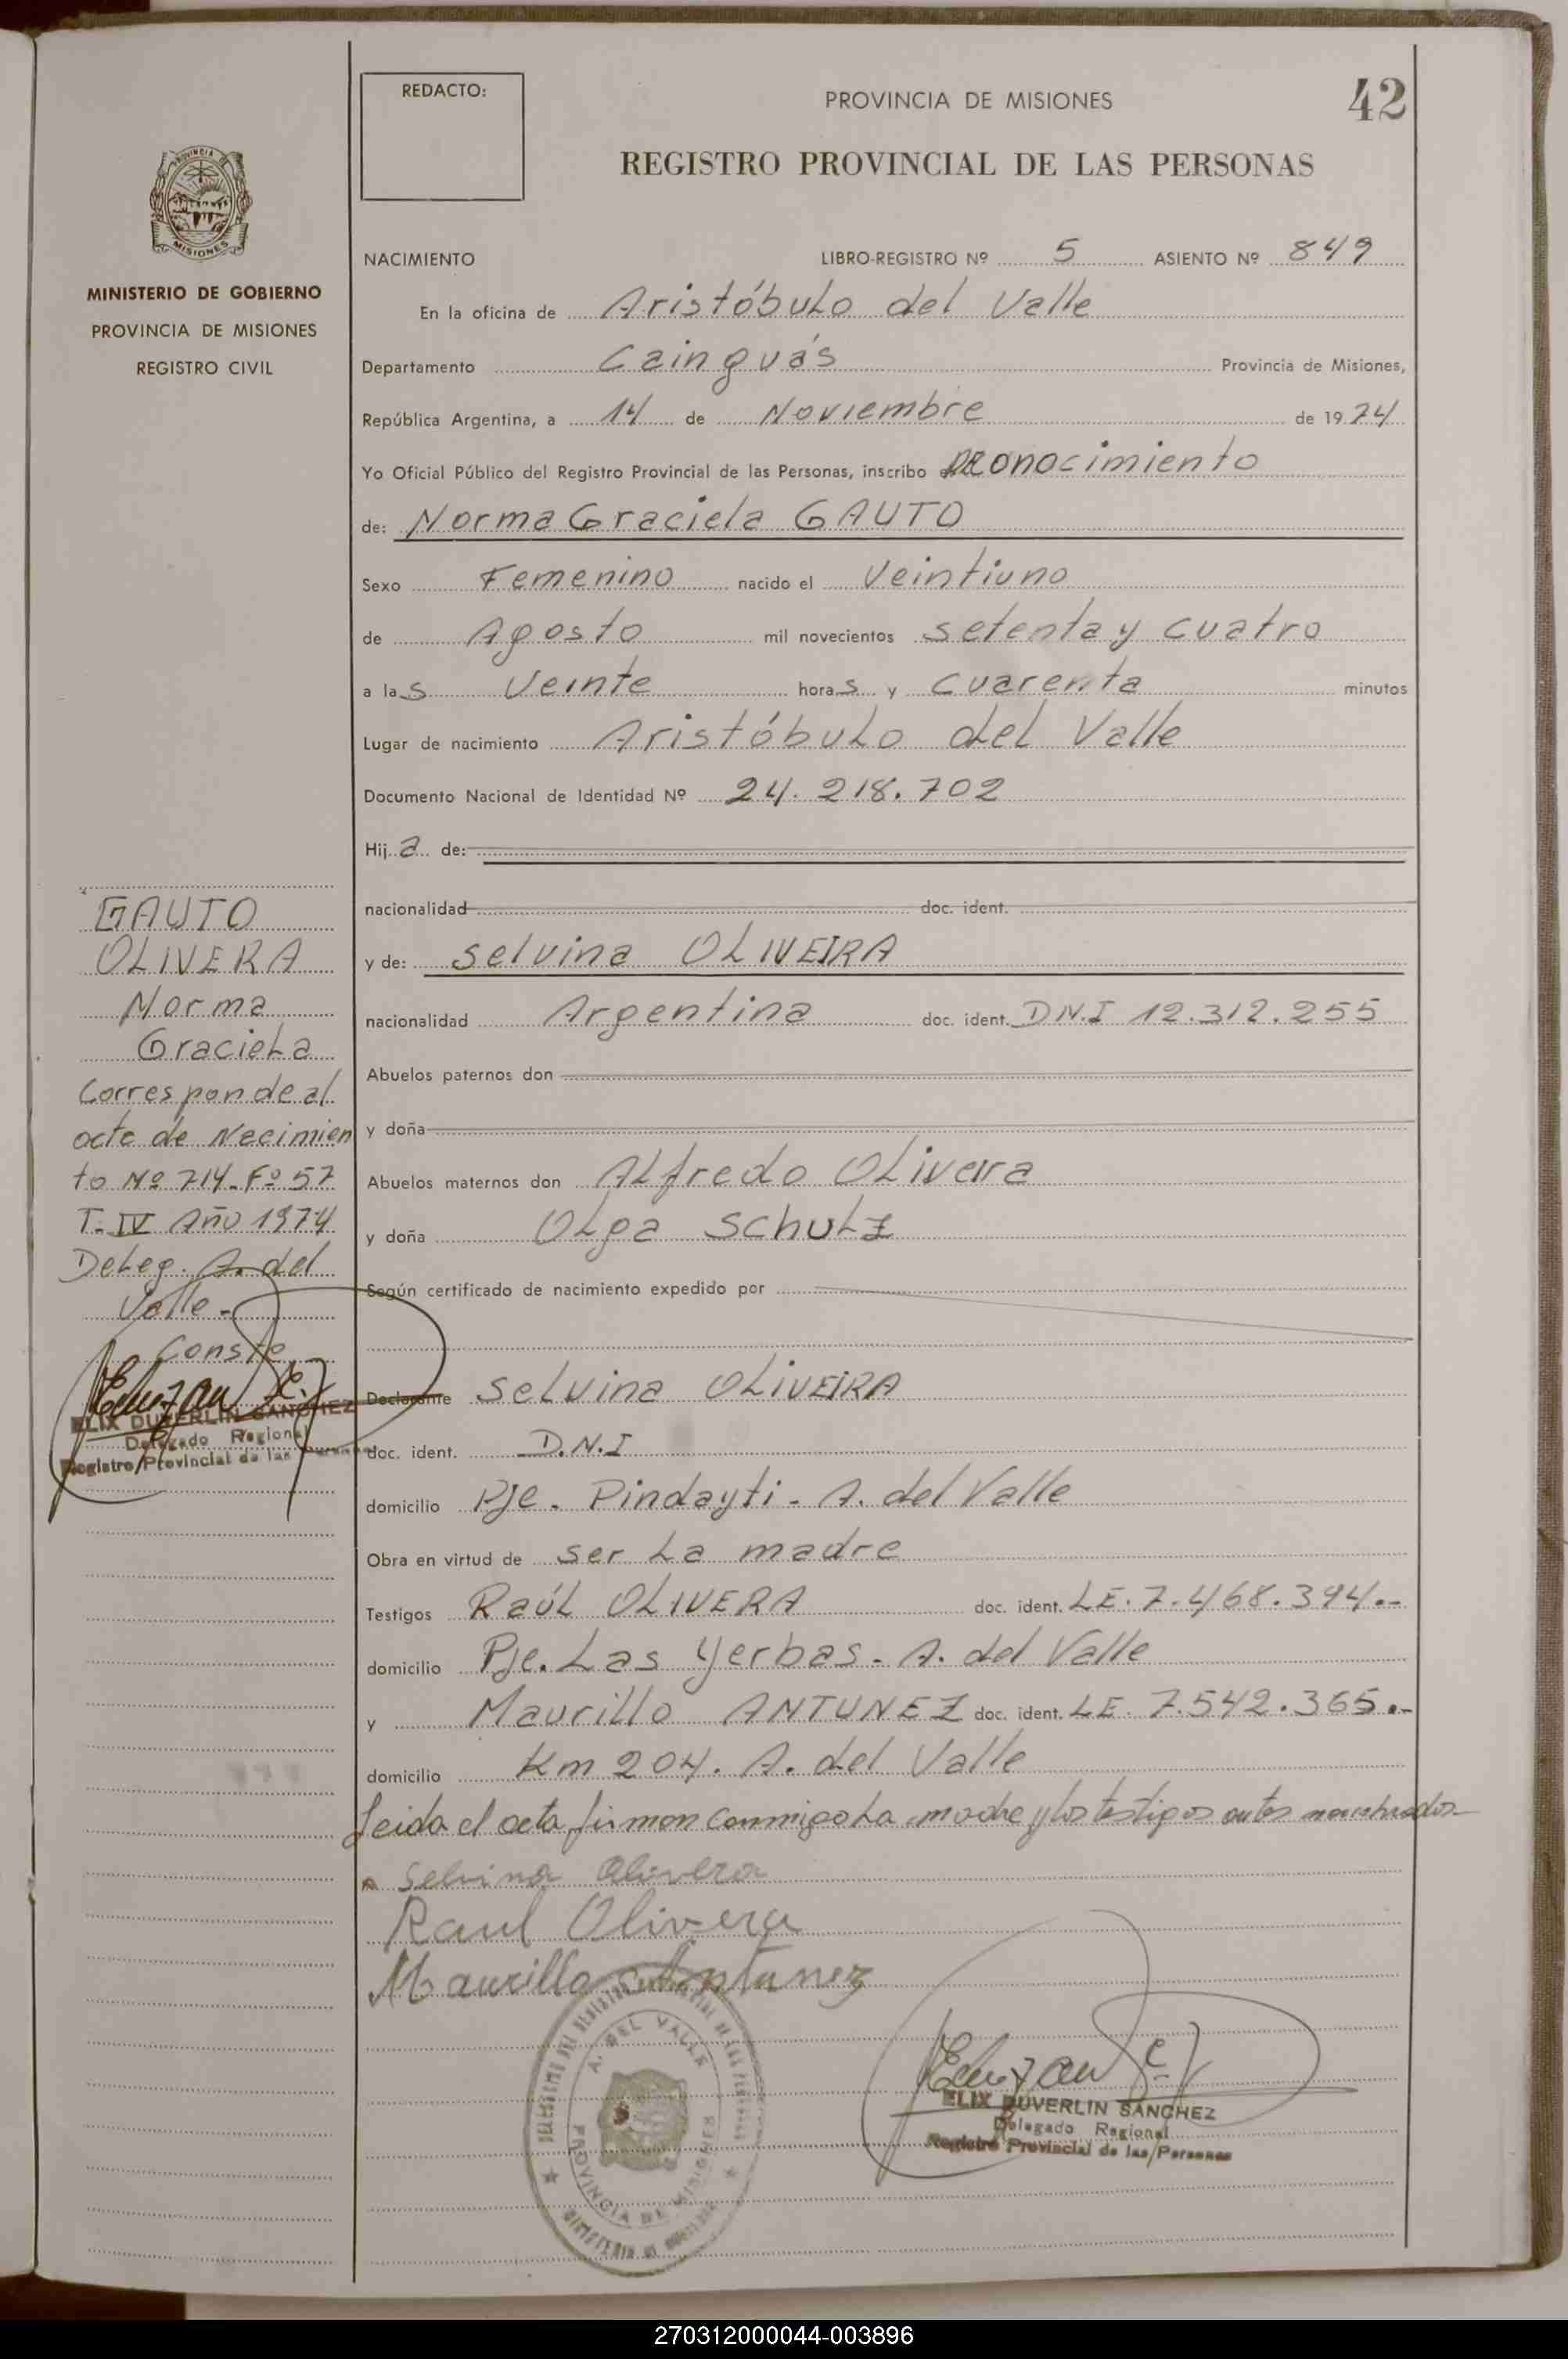 REDACTO:
PROVINCIA DE MISIONES
42
REGISTRO PROVINCIAL DE LAS PERSONAS
PROVINCIA DE
MISIONES
MINISTERIO DE GOBIERNO
PROVINCIA DE MISIONES
REGISTRO CIVIL
NACIMIENTO LIBRO-REGISTRO Nº 5 ASIENTO Nº 849
En la oficina de Aristóbulo del Valle
Departamento Cainguás Provincia de Misiones,
República Argentina, a 14 de Noviembre de 1974
Yo Oficial Público del Registro Provincial de las Personas, inscribo reconocimiento
de: Norma Graciela GAUTO
Sexo Femenino nacido el Veintiuno
de Agosto mil novecientos setenta y cuatro
a las Veinte horas y cuarenta minutos
Lugar de nacimiento Aristóbulo del Valle
Documento Nacional de Identidad Nº 24.218.702
Hija de:
nacionalidad doc. ident.
y de: Selvina OLIVEIRA
nacionalidad Argentina doc. ident. D.N.I 12.312.255
Abuelos paternos don
y doña
Abuelos maternos don Alfredo Oliveira
y doña Olga Schulz
Según certificado de nacimiento expedido por
Declarante Selvina OLIVEIRA
doc. ident. D.N.I
domicilio Pje. Pindayti - A. del Valle
Obra en virtud de ser la madre
Testigos Raúl OLIVERA doc. ident. LE. 7.468.394.-
domicilio Pje. Las Yerbas - A. del Valle
y Maurillo ANTUNEZ doc. ident. LE. 7.542.365.-
domicilio Km 204. A. del Valle
Leida el acta firman conmigo la madre y los testigos antes
Selvina Olivera
Raul Olivera
Maurillo Antunez
GAUTO
OLIVERA
Norma
Graciela
Corresponde al
acta de Nacimien
to Nº 714 - Fº 57
T. IV Año 1974
Deleg. A. del
Valle -
Conste
ELIX DUVERLIN SANCHEZ
Delegado Regional
Registro Provincial de las
A. DEL VALLE
PROVINCIA DE MISIONES
ELIX DUVERLIN SANCHEZ
Delegado Regional
Registro Provincial de las Personas
270312000044-003896